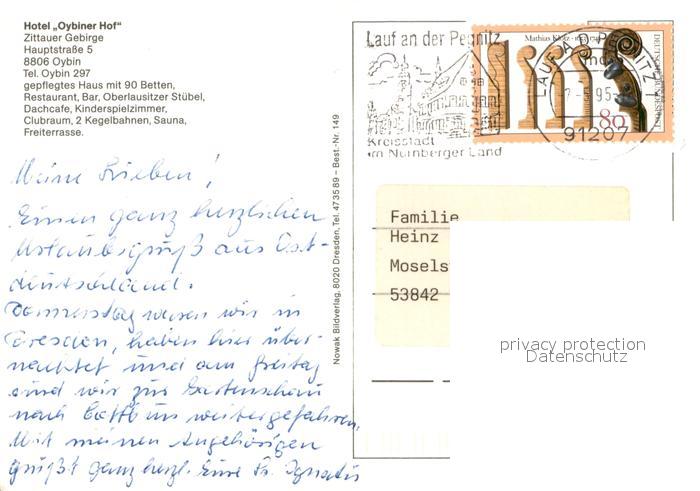 Hotel „Oybiner Hof“
Zittauer Gebirge
Hauptstraße 5
8806 Oybin
Tel. Oybin 297
gepflegtes Haus mit 90 Betten,
Restaurant, Bar, Oberlausitzer Stübel,
Dachcafe, Kinderspielzimmer,
Clubraum, 2 Kegelbahnen, Sauna,
Freiterrasse.
Meine Lieben!
Einen ganz herzlichen
Urlaubsgruß aus Ost-
deutschland.
Donnerstag waren wir in
Dresden, haben hier über-
nachtet und am Freitag
sind wir zur Gartenschau
nach Cottbus weitergefahren.
Mit meinen Angehörigen
grüßt ganz herzl. Eure Fr. Ignatis
Nowak Bildverlag, 8020 Dresden, Tel. 473589 – Best.-Nr. 149
Lauf an der Pegnitz
Kreisstadt
im Nürnberger Land
Mathias Klotz · 1653-1743
80
LAUF A D PEGNITZ
95
91207
Familie
Heinz
Mosels
53842
privacy protection
Datenschutz